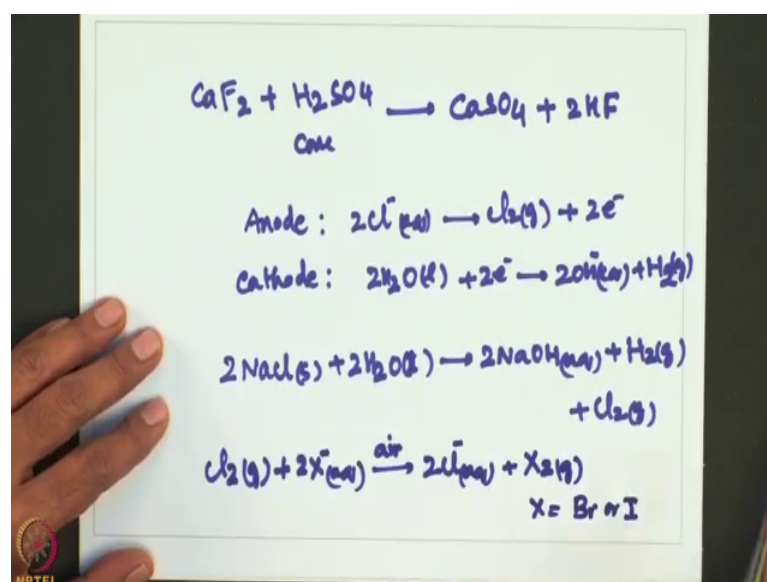 CaF₂ + H₂SO₄ ⟶ CaSO₄ + 2HF
Conc
Anode: 2Cl⁻(aq) ⟶ Cl₂(g) + 2e⁻
Cathode: 2H₂O(l) + 2e⁻ ⟶ 2OH⁻(aq) + H₂(g)
2NaCl(s) + 2H₂O(l) ⟶ 2NaOH(aq) + H₂(g)
+ Cl₂(g)
Cl₂(g) + 2X⁻(aq) air⟶ 2Cl⁻(aq) + X₂(g)
X = Br or I
NPTEL